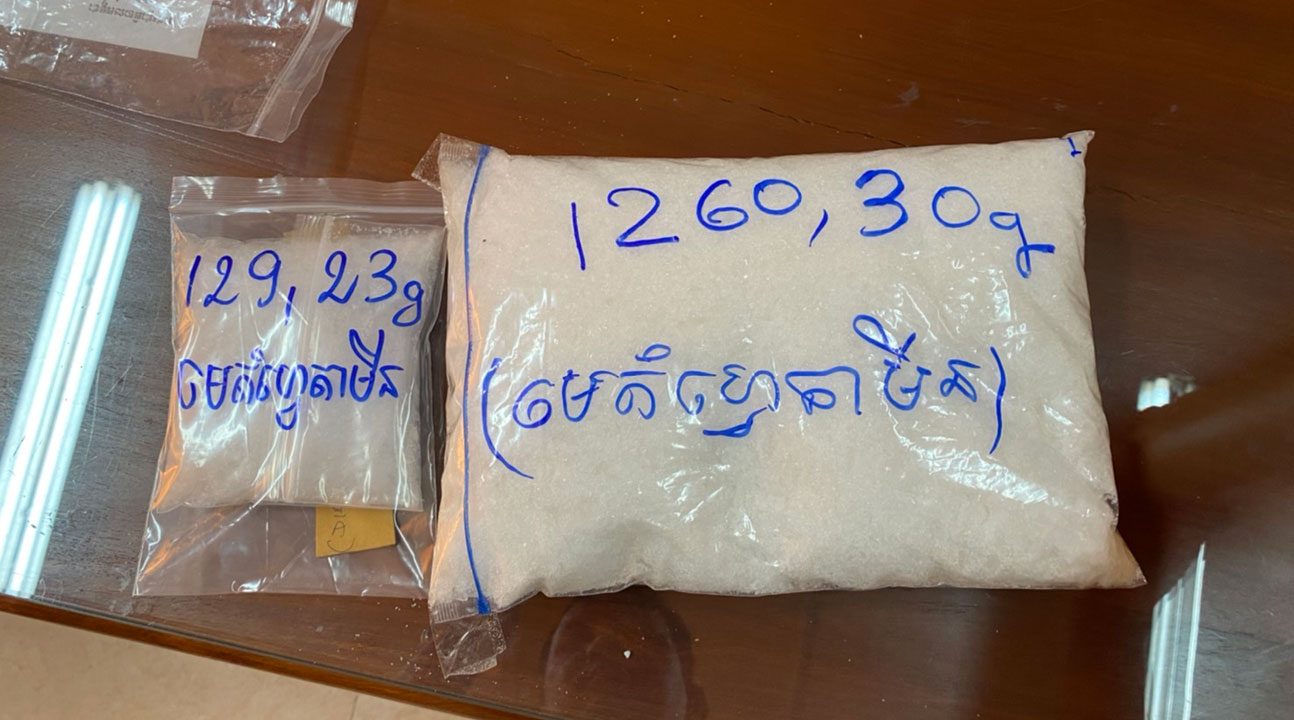 129, 23g
មេតំហ្វេតាមីន
1260, 30g
(មេតំហ្វេតាមីន)